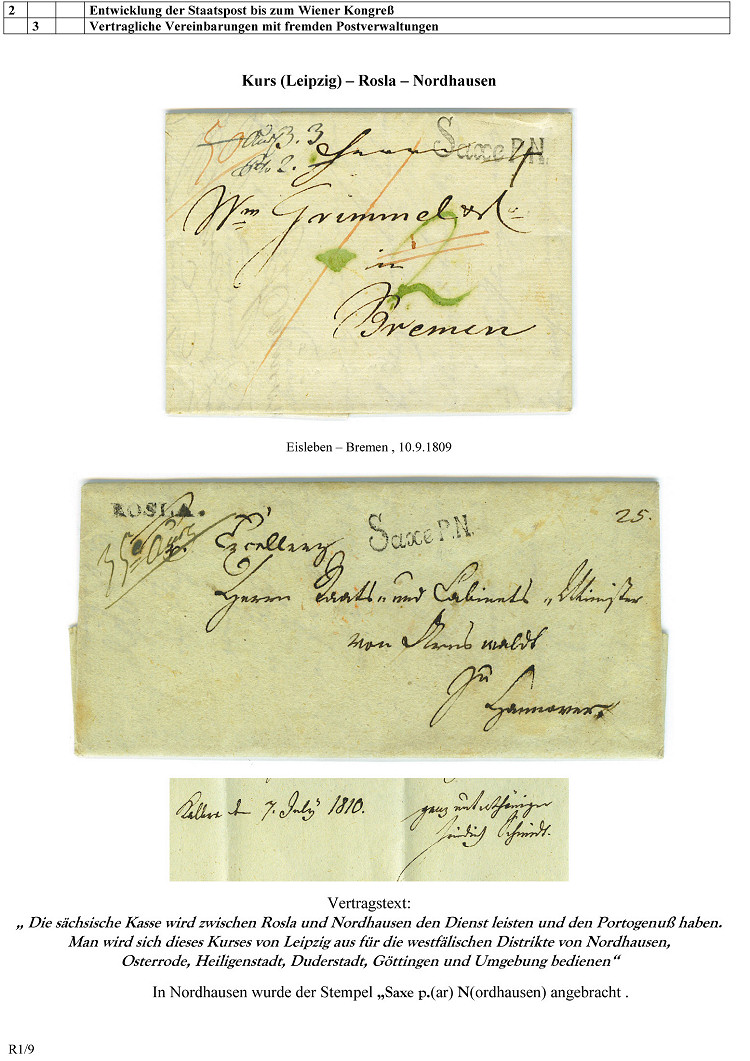 2 Entwicklung der Staatspost bis zum Wiener Kongreß
3 Vertragliche Vereinbarungen mit fremden Postverwaltungen
Kurs (Leipzig) – Rosla – Nordhausen
50
3. 3
2.
Saxe P.N.
Herrn
4
Wm Grimmel & Co
in
2
Bremen
Eisleben – Bremen , 10.9.1809
ROSLA.
Saxe P.N.
25.
Excellenz
Herrn Staats- und Cabinets-Minister
von Arnswaldt
zu
Hannover.
Kelbra d 7. July 1810.
ganz unterthäniger
Schmidt.
Vertragstext:
„ Die sächsische Kasse wird zwischen Rosla und Nordhausen den Dienst leisten und den Portogenuß haben.
Man wird sich dieses Kurses von Leipzig aus für die westfälischen Distrikte von Nordhausen,
Osterrode, Heiligenstadt, Duderstadt, Göttingen und Umgebung bedienen“
In Nordhausen wurde der Stempel „Saxe p.(ar) N(ordhausen) angebracht .
R1/9